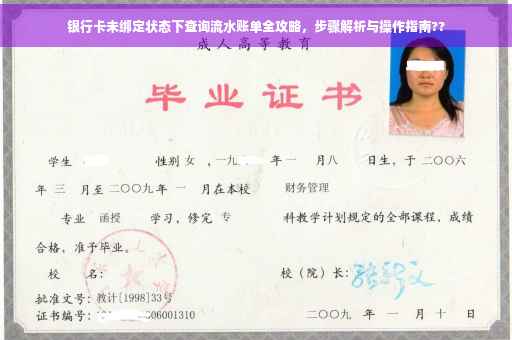 银行卡未绑定状态下查询流水账单全攻略，步骤解析与操作指南??
成人高等教育
毕业证书
学生 性别 女 ，一九 年一 月八 日生，于二〇〇六
年 三 月至二〇〇九年 一 月在本校 财务管理
专业 函授 学习，修完 专 科教学计划规定的全部课程，成绩
合格，准予毕业。
校 名： 校（院）长：
批准文号：教计[1998]33号
证书编号： 06001310 二〇〇九 年 一 月 十 日